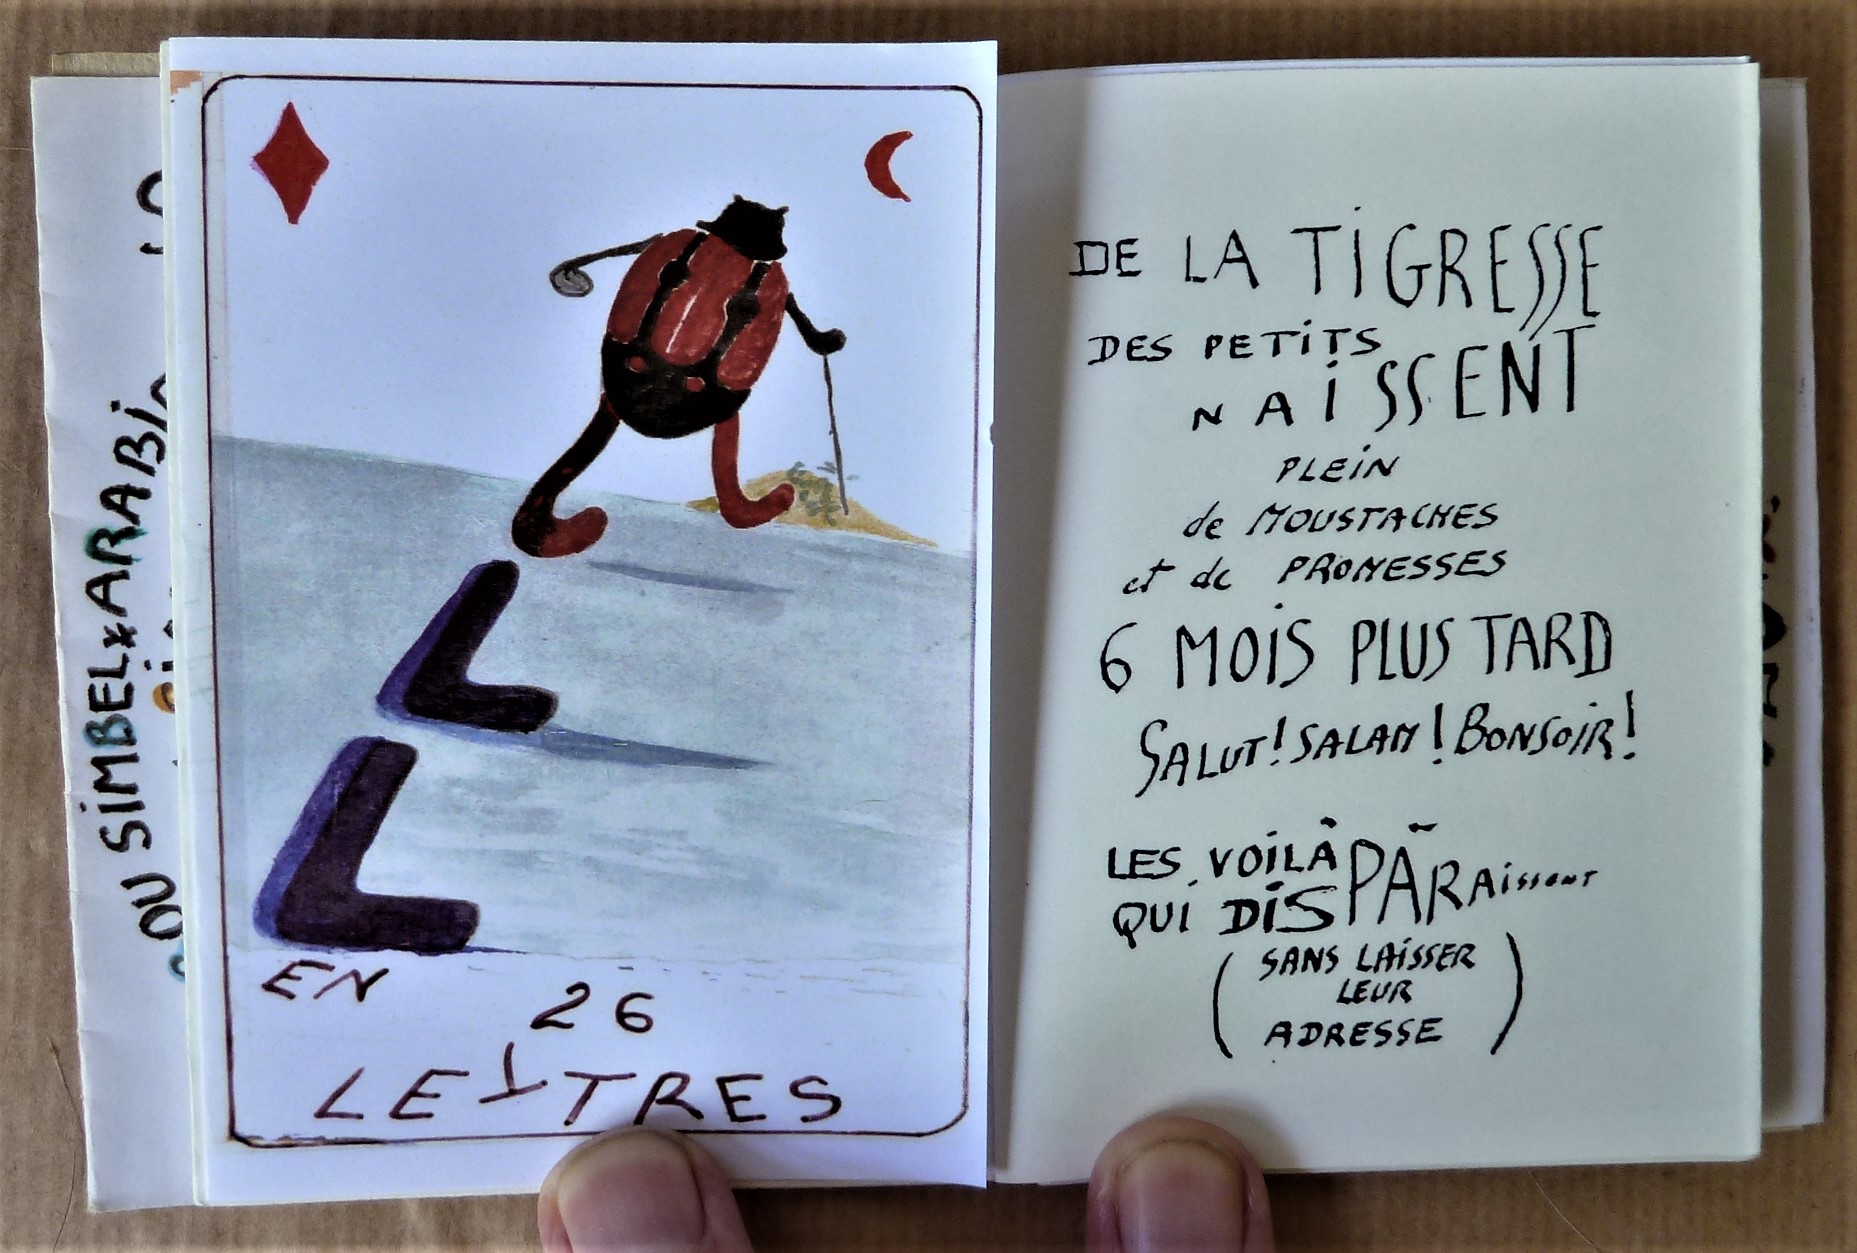 OU SIMBEL*ARABI
EN
26
LETTRES
DE LA TIGRESSE
DES PETITS
NAISSENT
PLEIN
de MOUSTACHES
et de PROMESSES
6 MOIS PLUS TARD
SALUT! SALAM! BONSOIR!
LES VOILÀ
QUI DISPARAissent
(SANS LAISSER
LEUR
ADRESSE)